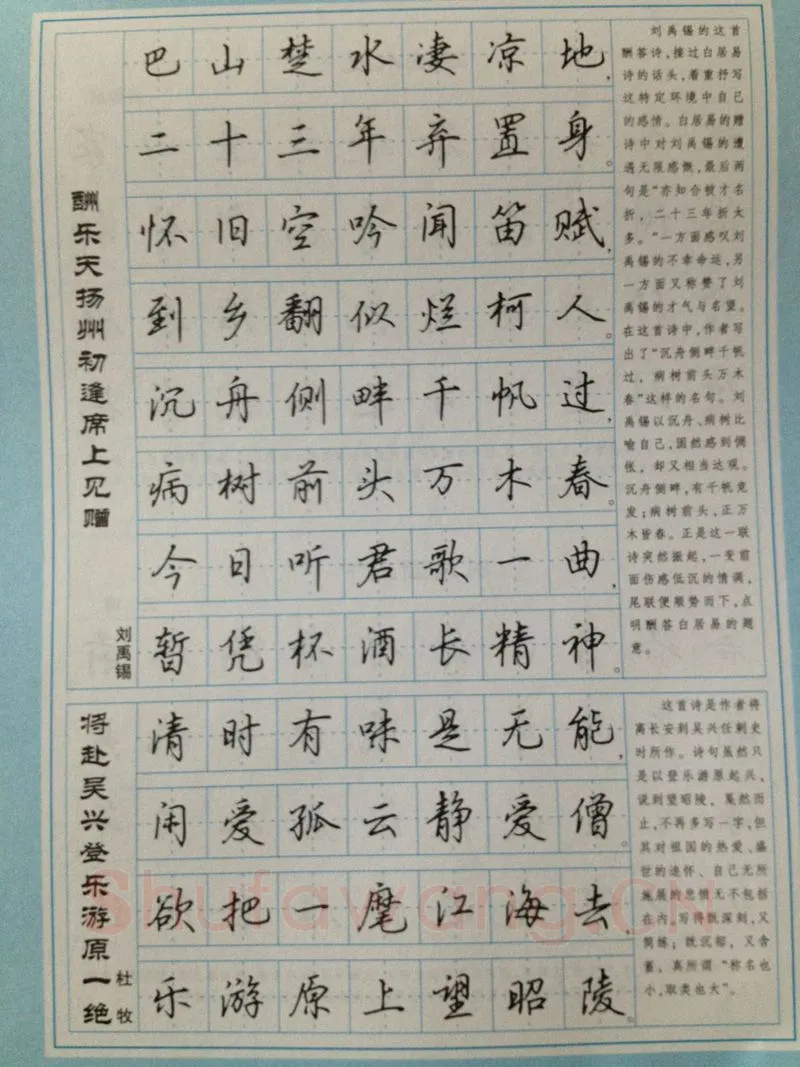 酬乐天扬州初逢席上见赠
刘禹锡
巴山楚水凄凉地，
二十三年弃置身。
怀旧空吟闻笛赋，
到乡翻似烂柯人。
沉舟侧畔千帆过，
病树前头万木春。
今日听君歌一曲，
暂凭杯酒长精神。
刘禹锡的这首
酬答诗，接过白居易
诗的话头，着重抒写
这特定环境中自己
的感情。白居易的赠
诗中对刘禹锡的遭
遇无限感慨，最后两
句是“亦知合被才名
折，二十三年折太
多。”一方面感叹刘
禹锡的不幸命运，另
一方面又称赞了刘
禹锡的才气与名望。
在这首诗中，作者写
出了“沉舟侧畔千帆
过，病树前头万木
春”这样的名句。刘
禹锡以沉舟、病树比
喻自己，固然感到惆
怅，却又相当达观。
沉舟侧畔，有千帆竞
发；病树前头，正万
木皆春。正是这一联
诗突然振起，一变前
面伤感低沉的情调，
尾联便顺势而下，点
明酬答白居易的题
意。
将赴吴兴登乐游原一绝
杜牧
清时有味是无能，
闲爱孤云静爱僧。
欲把一麾江海去，
乐游原上望昭陵。
这首诗是作者将
离长安到吴兴任刺史
时所作。诗句虽然只
是以登乐游原起兴，
说到望昭陵，戛然而
止，不再多写一字，但
其对祖国的热爱、盛
世的追怀、自己无所
施展的悲愤无不包括
在内，写得既深刻，又
简练；既沉郁，又含
蓄，真所谓“称名也
小，取类也大”。
Shufawang.cn